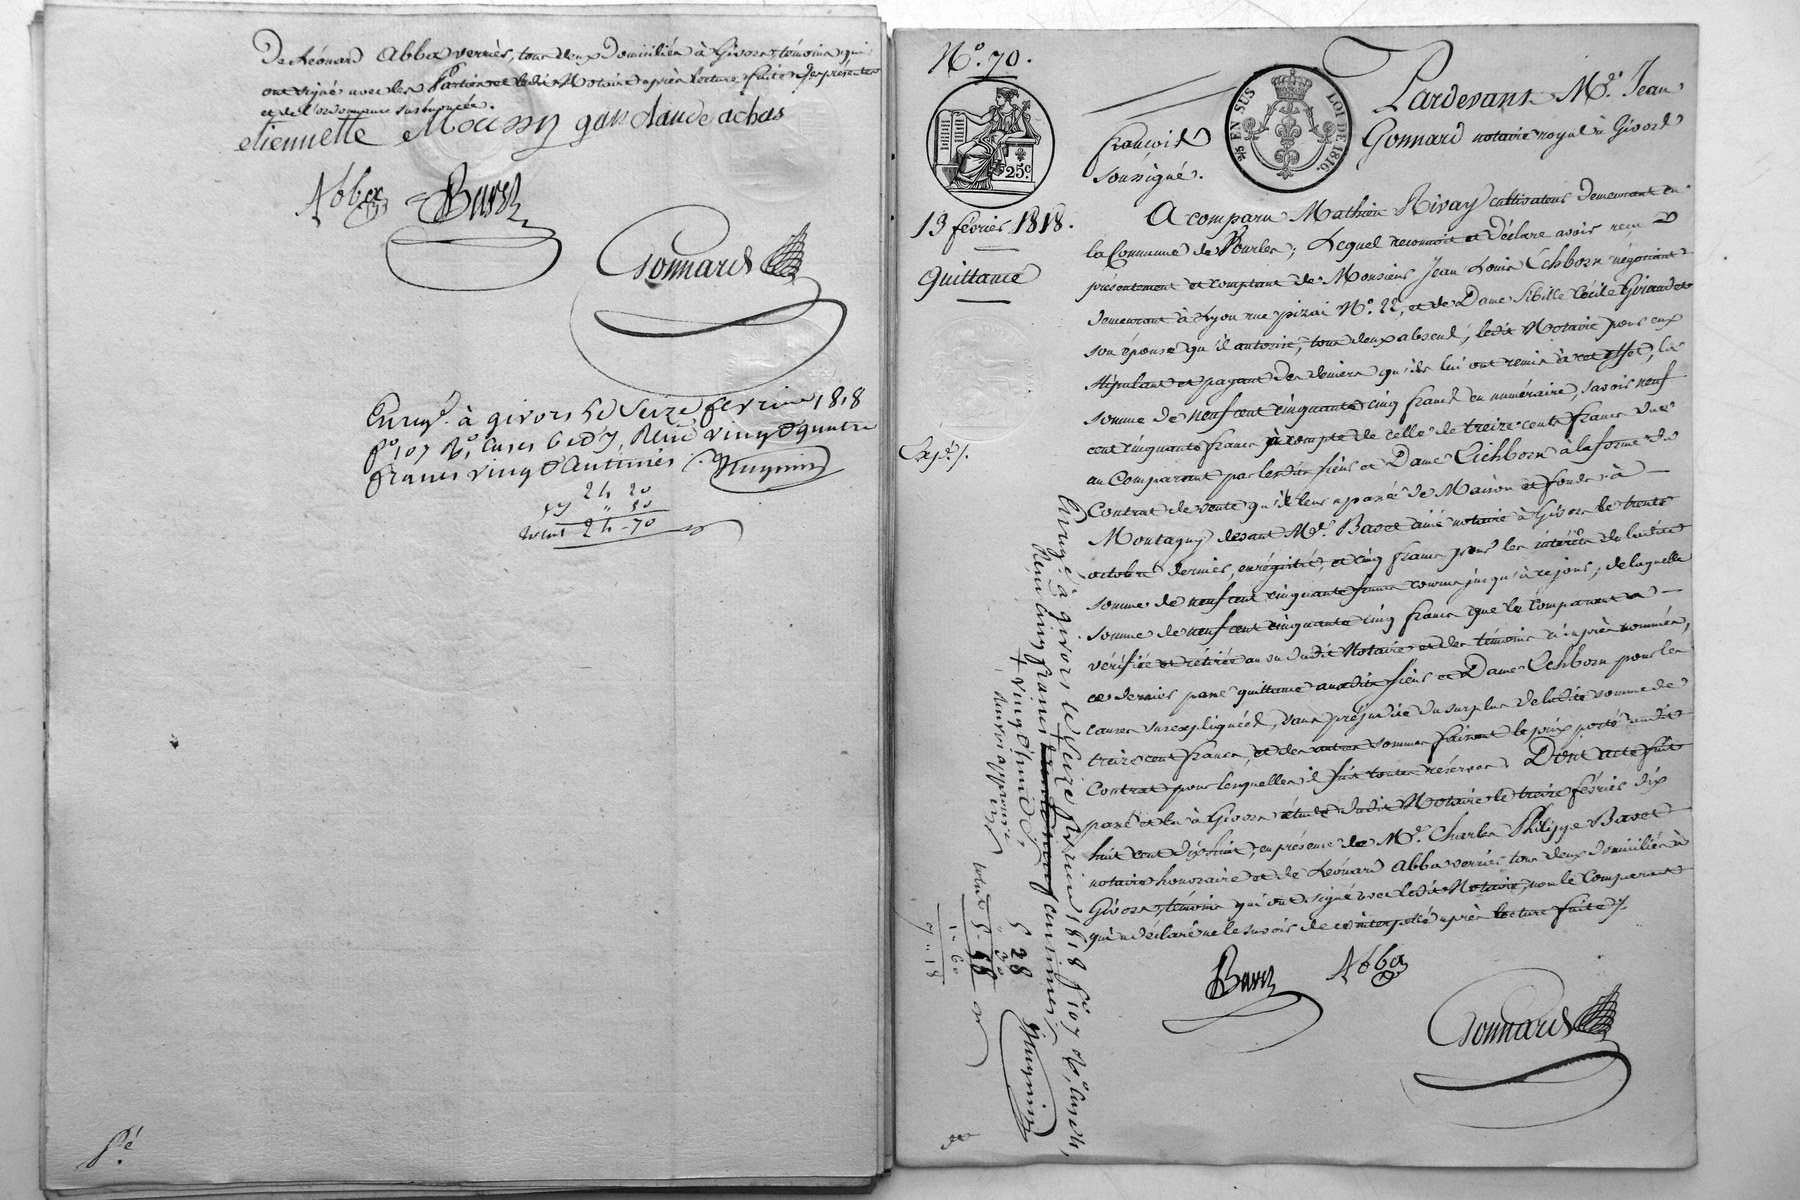 De Léonard Abba verrier, tous deux Domiciliés à Givors, témoins qui
ont signé avec les Parties et ledit Notaire après lecture faite des présentes
et de l'ordonnance susénoncée.
etiennette Moussy gas Claude achas
Abba Bavet
Gonnard
Enreg.é à givors le Seize fevrier 1818
f.o 107 R.o, Cases 6 et 7, Reçu vingt quatre
francs vingt Centimes. Hugnin
24 20
" 50
24-70
N.o 70.
25c
EN SUS
LOI DE 1816.
13 février 1818.
Quittance
Exp.é
Pardevant M.e Jean
François Gonnard notaire royal à Givors
soussigné.
A comparu Mathieu Rivay cultivateur demeurant en
la Commune de Bourles; Lequel reconnoit et déclare avoir reçu
présentement et comptant de Monsieur Jean Louis Echborn négociant
demeurant à Lyon rue pizai N.o 22, et de Dame Sibille Cécile Giraudet
son épouse qu'il autorise, tous deux absens, ledit Notaire pour eux
stipulant et payant des deniers qu'ils lui ont remis à cet effet, la
somme de neuf cent cinquante cinq francs en numéraire, savoir neuf
cent cinquante francs à compte de celle de treize cents francs due
au Comparant par lesdits sieur et Dame Eichborn à la forme du
Contrat de vente qu'il leur a passé de Maison et fonds à
Montagny devant M.e Bavet ainé notaire à Givors le trente
octobre dernier, enregistré, et cinq francs pour les intérêts de ladite
somme de neuf cent cinquante francs courus jusqu'à ce jour; de laquelle
somme de neuf cent cinquante cinq francs que le Comparant a
vérifiée et retirée au vu dudit Notaire et des témoins ci après nommés,
ce dernier passe quittance auxdits sieur et Dame Echborn pour les
causes susexpliquées, sans préjudice du surplus de ladite somme de
treize cent francs, et des autres sommes faisant le prix porté audit
Contrat pour lesquelles il fait toutes réserves. Dont acte fait
passé et lu à Givors étude dudit Notaire le treize février dix
huit cent dix huit, en présence de M.e Charles Philippe Bavet
notaire honoraire et de Léonard Abba verrier tous deux domiciliés à
Givors, témoins qui ont signé avec ledit Notaire, non le Comparant
qui a déclaré ne le savoir de ce interpellé après lecture faite
Bavet Abba
Gonnard
Enreg.é à givors le Seize fevrier 1818 f.o 107 R.o, Case 4,
Reçu cinq francs centimes Hugnin
+ vingt huit
5 28